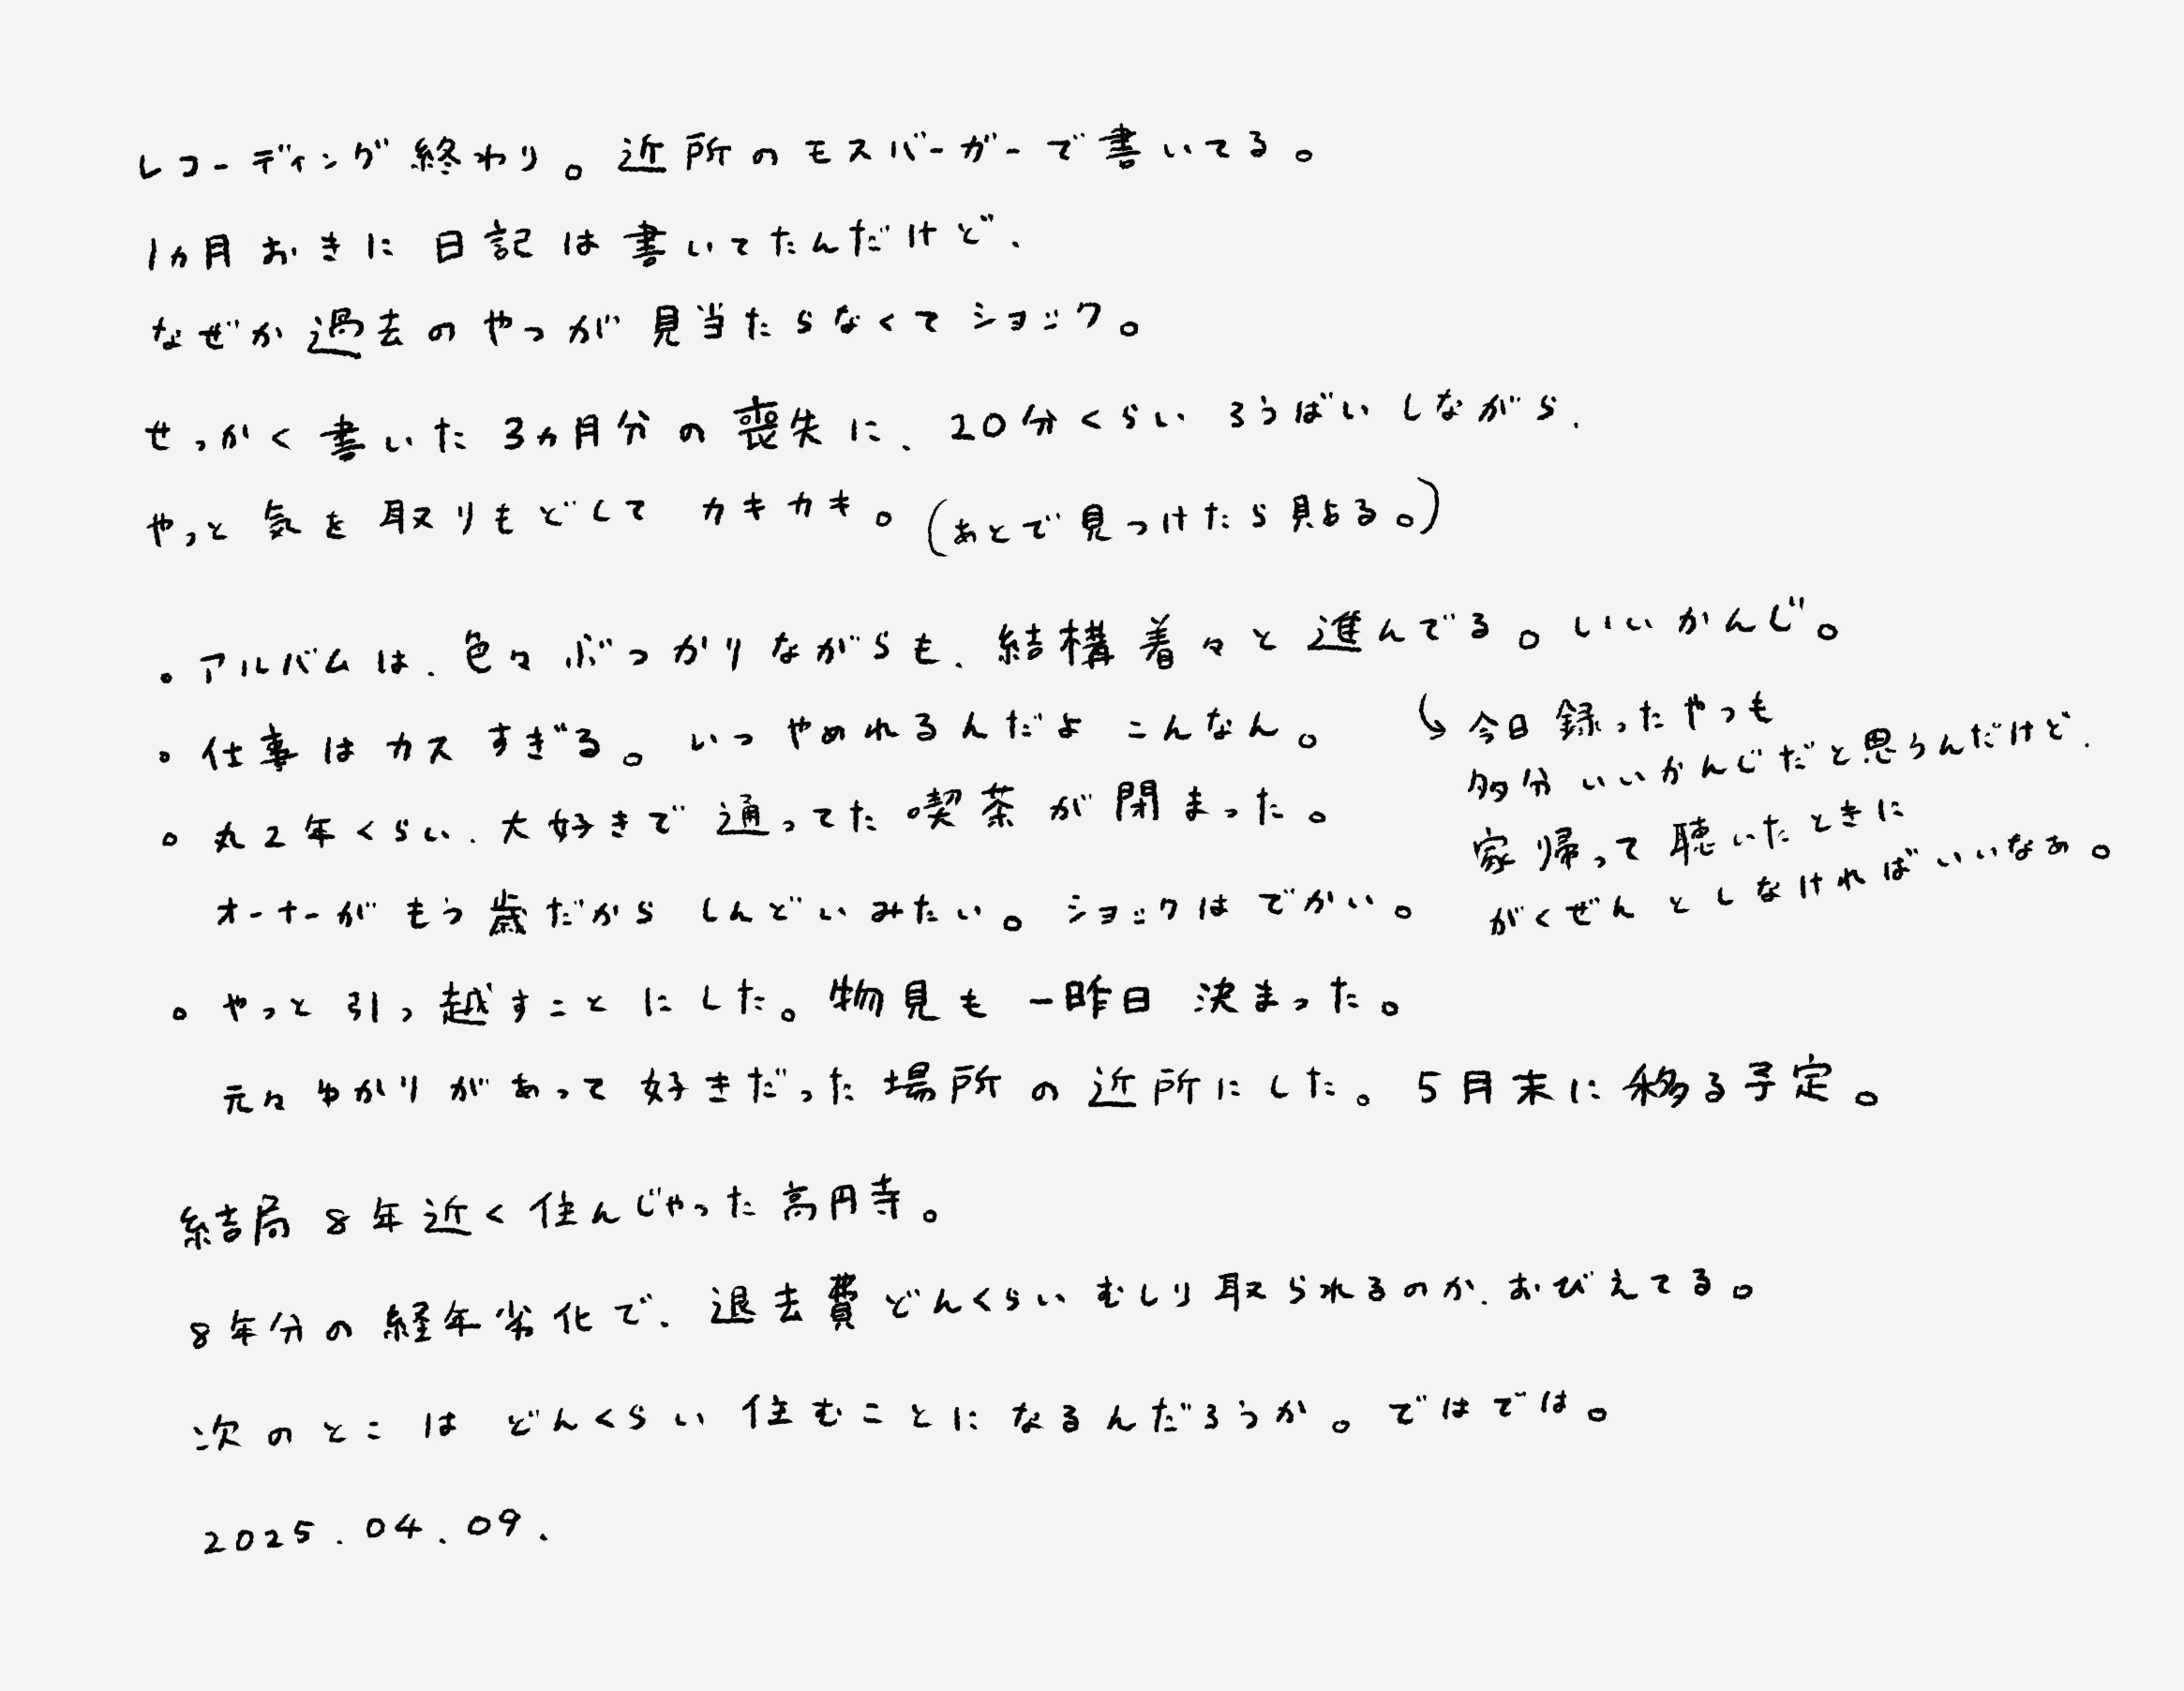 レコーディング終わり。近所のモスバーガーで書いてる。
1ヵ月おきに日記は書いてたんだけど、
なぜか過去のやつが見当たらなくてショック。
せっかく書いた3ヵ月分の喪失に、20分くらいろうばいしながら、
やっと気を取りもどしてカキカキ。(あとで見つけたら貼る。)
。アルバムは、色々ぶつかりながらも、結構着々と進んでる。いいかんじ。
↳今日録ったやつも
多分いいかんじだと思うんだけど、
家帰って聴いたときに
がくぜんとしなければいいなあ。
。仕事はカスすぎる。いつやめれるんだよこんなん。
。丸2年くらい、大好きで通ってた喫茶が閉まった。
オーナーがもう歳だからしんどいみたい。ショックはでかい。
。やっと引っ越すことにした。物見も一昨日決まった。
元々ゆかりがあって好きだった場所の近所にした。5月末に移る予定。
結局8年近く住んじゃった高円寺。
8年分の経年劣化で、退去費どんくらいむしり取られるのか、おびえてる。
次のとこはどんくらい住むことになるんだろうか。ではでは。
2025.04.09.